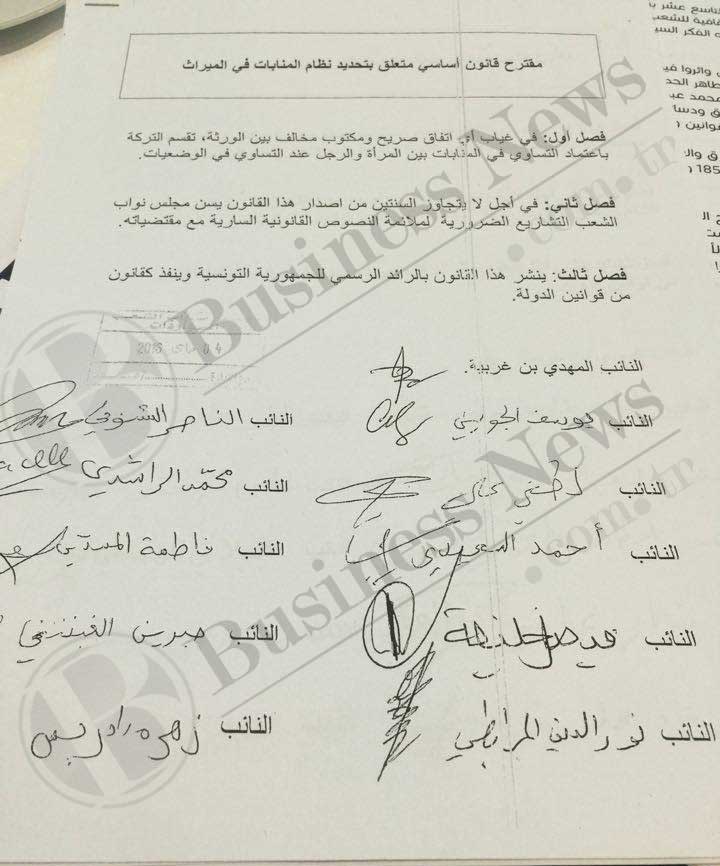 مقترح قانون أساسي متعلق بتحديد نظام المنابات في الميراث
فصل أول: في غياب أي اتفاق صريح ومكتوب مخالف بين الورثة، تقسم التركة
باعتماد التساوي في المنابات بين المرأة والرجل عند التساوي في الوضعيات.
فصل ثاني: في أجل لا يتجاوز السنتين من اصدار هذا القانون يسن مجلس نواب
الشعب التشاريع الضرورية لملائمة النصوص القانونية السارية مع مقتضياته.
فصل ثالث: ينشر هذا القانون بالرائد الرسمي للجمهورية التونسية وينفذ كقانون
من قوانين الدولة.
النائب المهدي بن غربية.
النائب يوسف الجويني
النائب الناصر الشنوفي
النائب لطفي
النائب محمد الراشدي
النائب أحمد السعيدي
النائب فاطمة المسدي
النائب فيصل خليفة
النائب صبرين القبنتيني
النائب نور الدين المرابطي
النائب زهرة إدريس
04 ماي 2016
التاسع عشر
الفكر
محمد
Business News
.com.tn
Business News
.com.tn